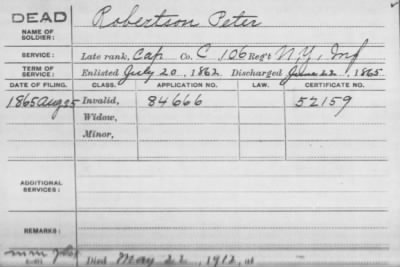 DEAD Robertson Peter
NAME OF SOLDIER:
SERVICE: Late rank, Cap Co. C 106 Reg't N.Y. Inf
TERM OF SERVICE: Enlisted July 20, 1862 Discharged June 22, 1865
DATE OF FILING. CLASS. APPLICATION NO. LAW. CERTIFICATE NO.
1865 Aug 25 Invalid, 84666 52159
Widow,
Minor,
ADDITIONAL SERVICES:
REMARKS:
Died May 22, 1912, at